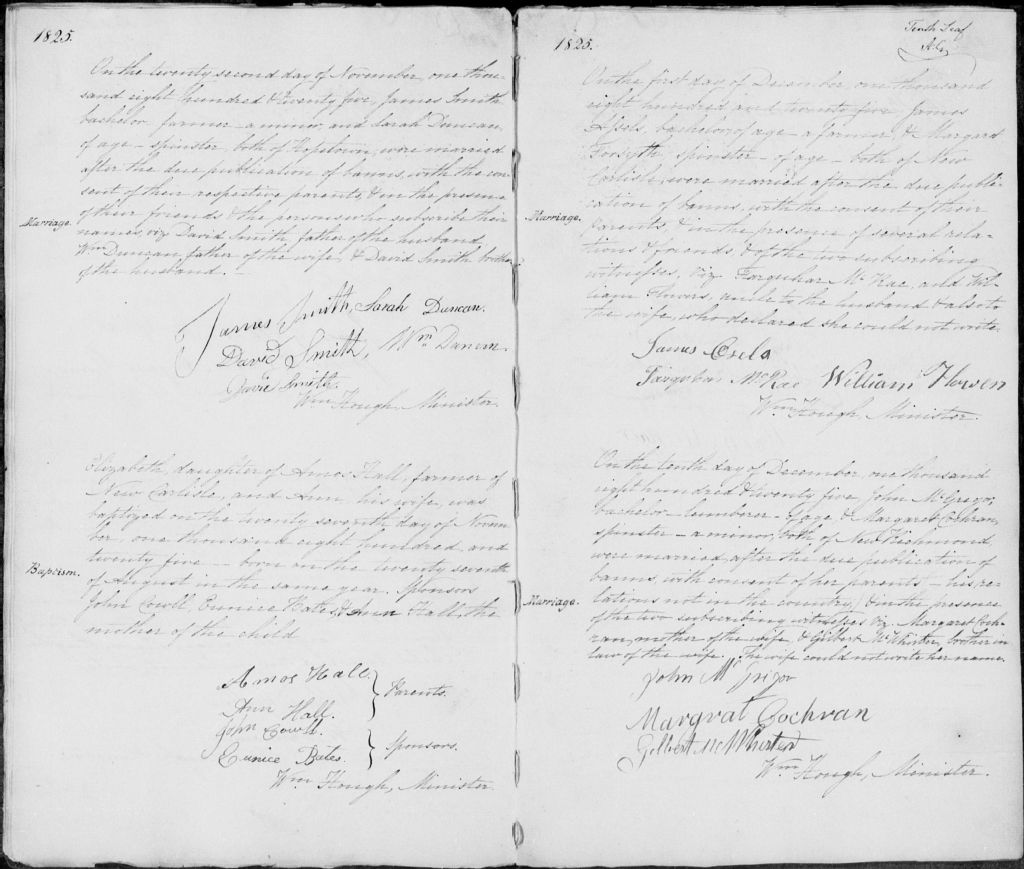 1825.
On the twenty second day of November, one thou-
sand eight hundred & twenty five, James Smith
bachelor, farmer - a minor, and Sarah Duncan,
of age - spinster, both of Hopetown, were married
after the due publication of banns, with the con-
sent of their respective parents, & in the presence
of their friends & the persons who subscribe their
Marriage.
names, viz David Smith, father of the husband,
Wm Duncan father of the wife, & David Smith, brother
of the husband. -
James Smith, Sarah Duncan.
David Smith, Wm Duncan
David Smith.
Wm Hough, Minister.
Elizabeth, daughter of Amos Hall, farmer of
New Carlisle, and Ann his wife, was
baptized on the twenty seventh day of Novem-
ber, one thousand eight hundred and
twenty five - born on the twenty seventh
Baptism.
of August in the same year. Sponsors
John Cowll, Eunice Bates, & Ann Hall, the
mother of the child
Amos Hall.
Ann Hall. } Parents.
John Cowll.
Eunice Bates. } Sponsors.
Wm Hough, Minister.
1825.
Tenth Leaf
On the first day of December, one thousand
eight hundred and twenty five James
bachelor, of age - a farmer, & Margaret
Forsyth, spinster - of age - both of New
Carlisle, were married after the due publi-
cation of banns, with the consent of their
Marriage.
parents, & in the presence of several rela-
tions & friends, & of the two subscribing
witnesses, viz. Farquhar McRae, and Wil-
liam Flowers, uncle to the husband & also to
the wife, who declared she could not write.
James
Farquhar McRae William Flowen
Wm Hough, Minister.
On the tenth day of December, one thousand
eight hundred & twenty five, John McGregor,
bachelor - lumberer - of age, & Margaret Cochran,
spinster - a minor, both of New Richmond
were married, after the due publication of
banns, with consent of her parents - his re-
Marriage.
lations not in the country, & in the presence
of the two subscribing witnesses viz. Margaret Coch-
ran, mother of the wife & Gilbert McWhirter, brother in
law of the wife. The wife could not write her name.
John McGrigor
Margrat Cochran
Gilbert McWhirter
Wm Hough, Minister.